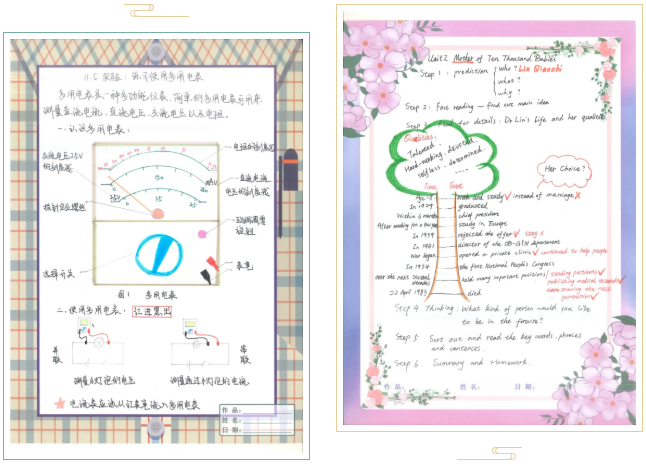 11.5 实验：练习使用多用电表
多用电表是一种多功能仪表，简单的多用电表可用来
测量直流电流，直流电压，交流电压以及电阻。
一、认识多用电表：
交流电压2.5V
的刻度线
电阻的刻度
直流电流
电压的刻度线
mAV
2.5V
指针定位螺丝
欧姆调零
旋钮
选择开关
表笔
图1 多用电表
二、使用多用电表：红进黑出
并
联
串
联
测量小灯泡的电压
测量通过小灯泡的电流
电流表应该从红表笔流入多用电表
作 品：
姓 名：
日 期：
Unit2 Mother of Ten Thousand Babies
Step 1 : prediction
who? Lin Qiaozhi
what?
why?
Step 2: Fore reading — find out main idea
Step 3 : Read for details : Dr Lin's life and her qualities
Qualities:
Talented
Hard-working, devoted
selfless, determined
...
Her Choice?
Time Event
Age 18 work and study instead of marriage
In 1929 graduated
Within 6 months chief president
After working for a few years study in Europe
In 1939 rejected the offer stay
In 1941 director of the OB-GYN department
War began opened a private clinic continued to help people
In 1954 the first National People's Congress
over the next several decades held many important positions / tending patients
publishing medical research
training the next generation
22 April 1983 died
Step 4 Thinking : What kind of person would you like
to be in the future?
Step 5 Sort out and read the key words, phrases
and sentences.
Step 6 Summary and Homework.
作 品：
姓 名：
日 期：